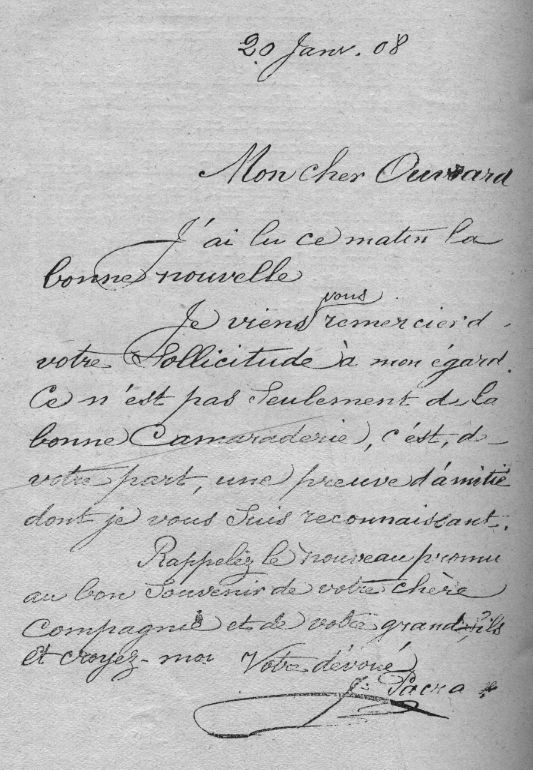 20 Janv. 08
Mon cher Ouvrard
J'ai lu ce matin la
bonne nouvelle
Je viens vous remercier d
votre Sollicitude à mon égard.
Ce n'est pas Seulement d la
bonne Camaraderie, c'est, d
votre part, une preuve d'amitié
dont je vous Suis reconnaissant.
Rappelez le nouveau promu
au bon Souvenir de votre chère
Compagnie et de votre grand fils
et croyez-moi Votre dévoué
J. Pacra